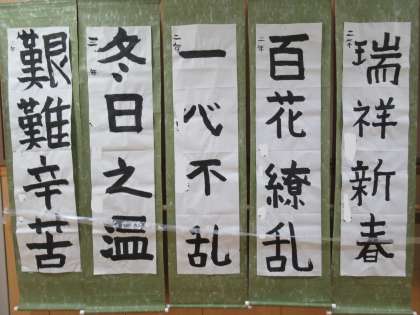 瑞祥新春
百花繚乱
一心不乱
冬日之温
艱難辛苦